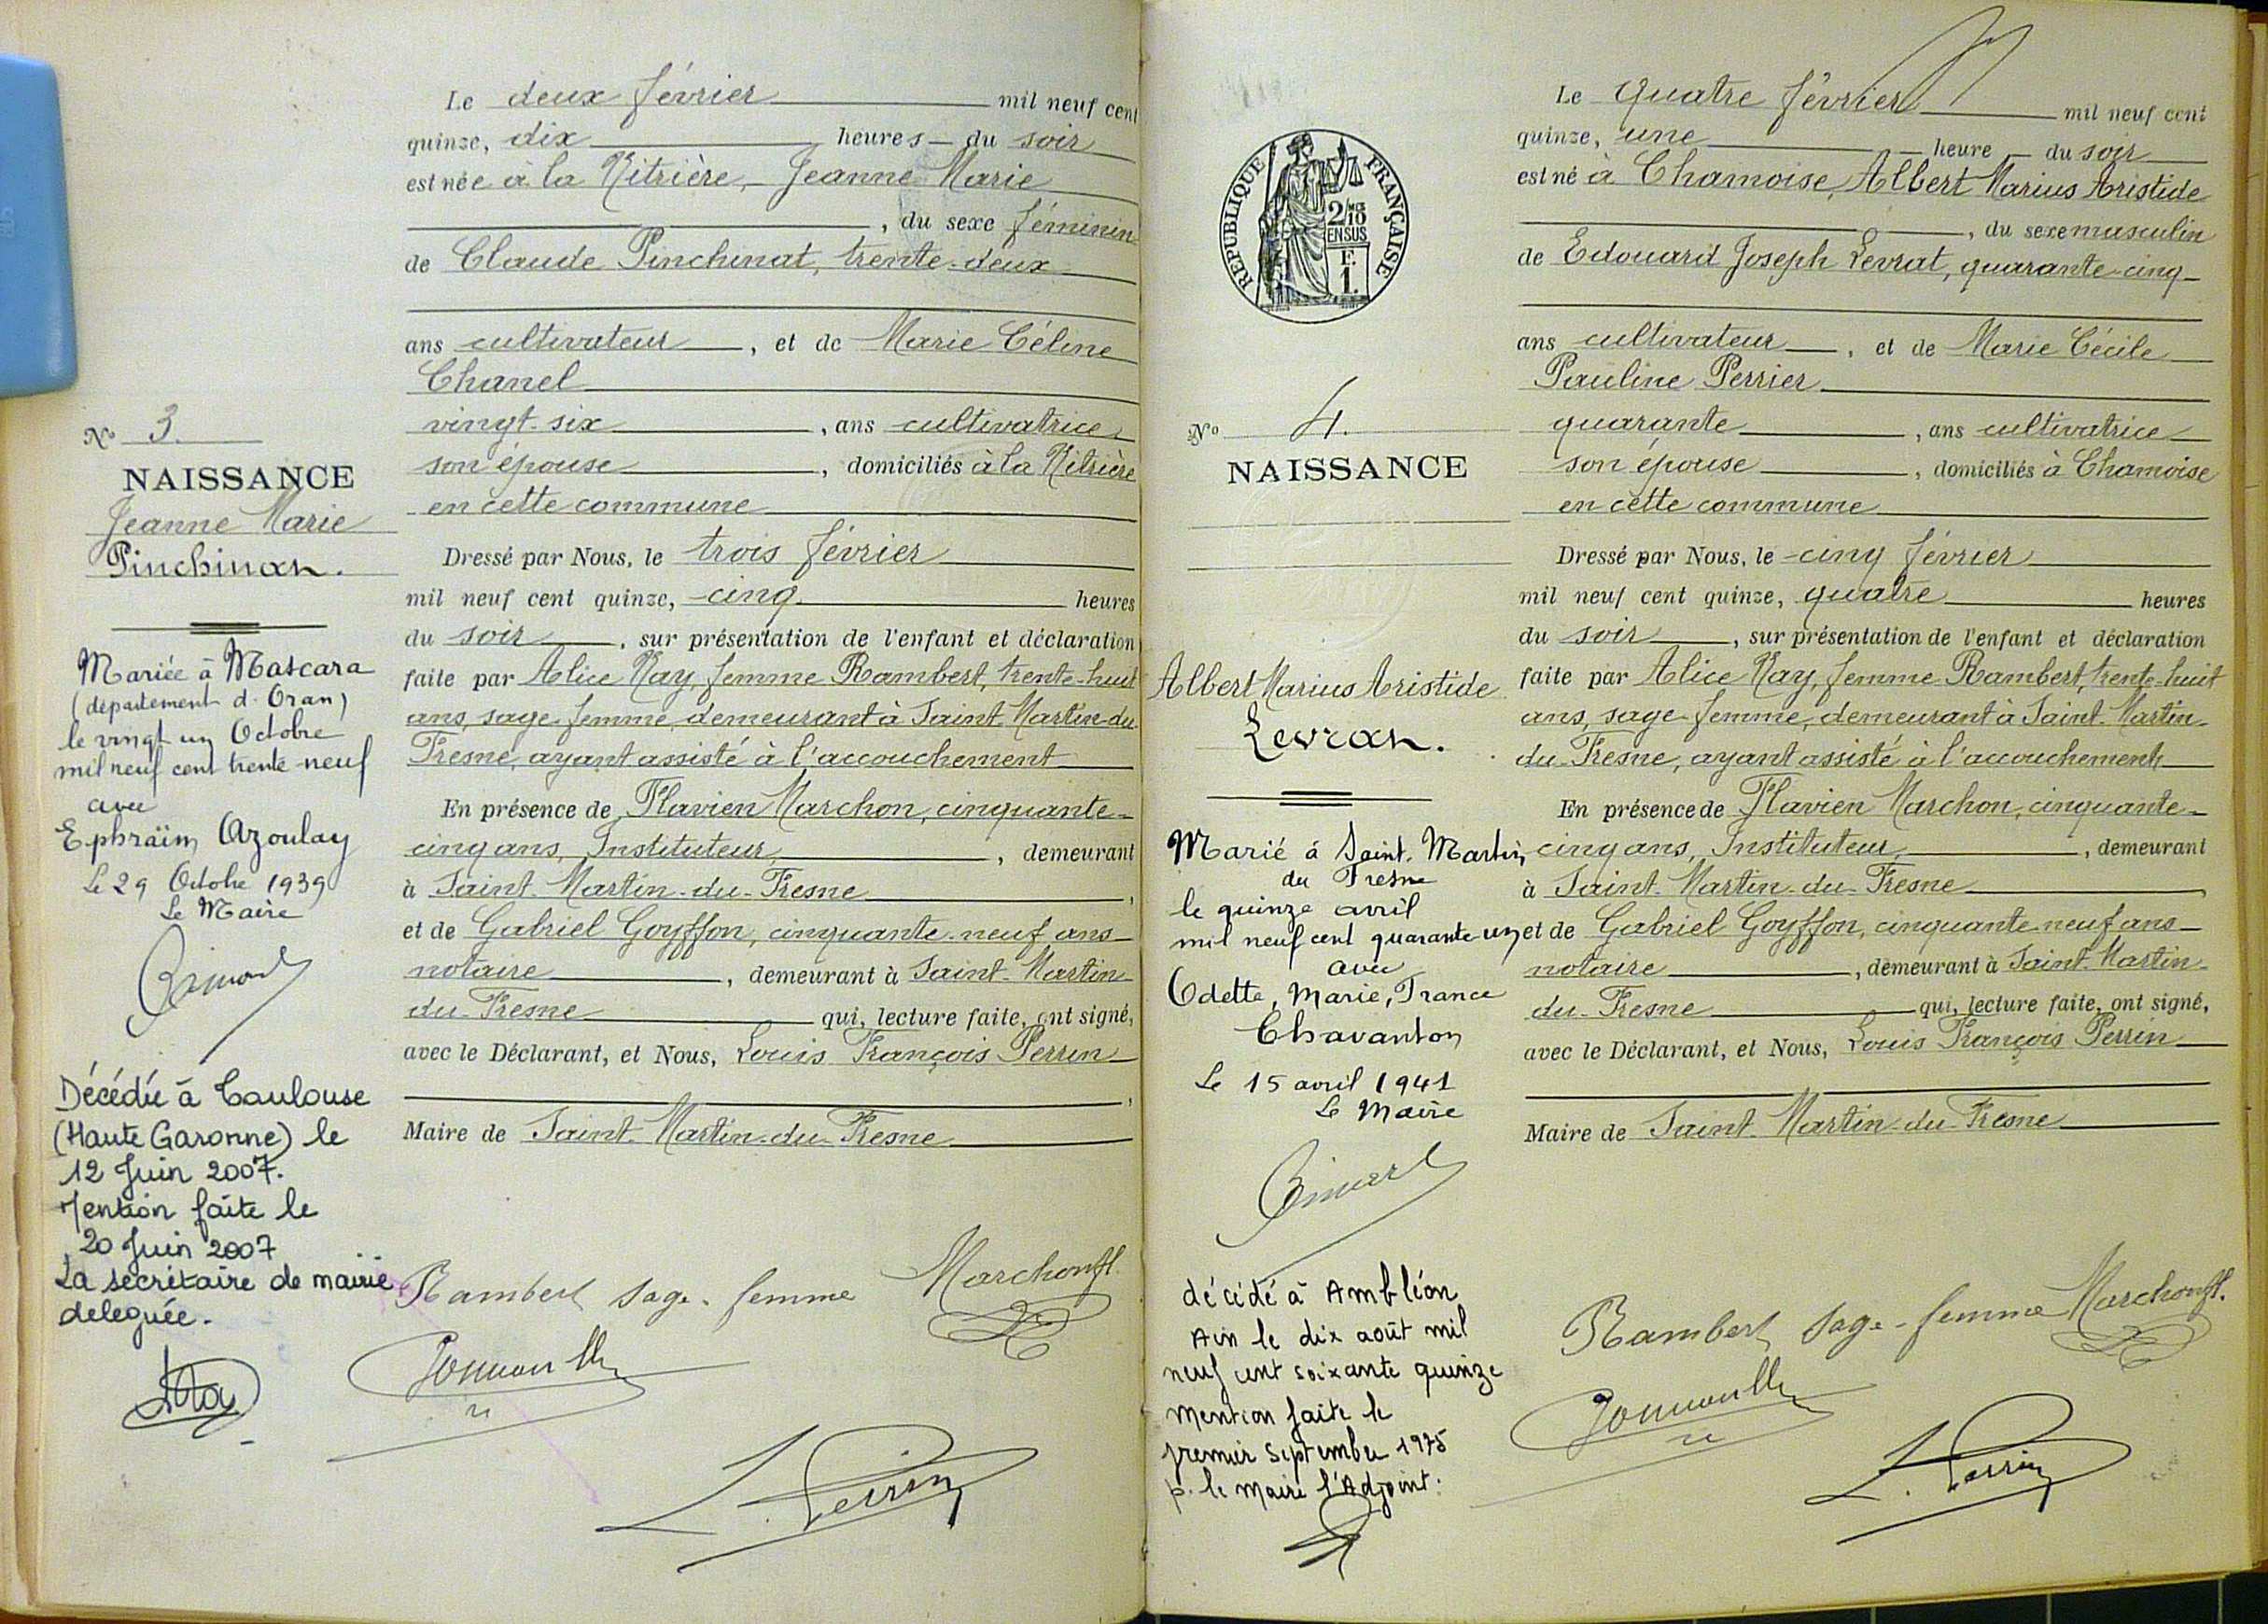 Le deux février mil neuf cent
quinze, dix heures du soir
est née à la Vitrière, Jeanne Marie
, du sexe féminin
de Claude Pinchinat, trente-deux
ans cultivateur, et de Marie Céline
Chanel
vingt-six, ans cultivatrice
son épouse, domiciliés à la Vitrière
en cette commune
Dressé par Nous, le trois février
mil neuf cent quinze, cinq heures
du soir, sur présentation de l'enfant et déclaration
faite par Alice Nay, femme Rambert, trente-huit
ans, sage-femme, demeurant à Saint-Martin-du-
Fresne, ayant assisté à l'accouchement
En présence de Flavien Marchon, cinquante-
cinq ans, Instituteur, demeurant
à Saint-Martin-du-Fresne,
et de Gabriel Goyffon, cinquante-neuf ans
notaire, demeurant à Saint-Martin
du-Fresne qui, lecture faite, ont signé,
avec le Déclarant, et Nous, Louis François Perrin
,
Maire de Saint-Martin-du-Fresne
Rambert sage-femme Marchon fl.
L. Perrin
No 3.
NAISSANCE
Jeanne Marie
Pinchinat.
Mariée à Mascara
(département d'Oran)
le vingt un Octobre
mil neuf cent trente-neuf
avec
Ephraïm Azoulay
Le 29 Octobre 1939
Le Maire
Décédée à Toulouse
(Haute Garonne) le
12 Juin 2007.
Mention faite le
20 Juin 2007
La secrétaire de mairie
deleguée.
RÉPUBLIQUE FRANÇAISE
2/10
EN SUS
F.
1.
No 4.
NAISSANCE
Albert Marius Aristide
Levrat.
Marié à Saint-Martin
du Fresne
le quinze avril
mil neuf cent quarante-un
avec
Odette, Marie, France
Chavanton
Le 15 avril 1941
Le Maire
décédé à Ambléon
Ain le dix août mil
neuf cent soixante quinze
Mention faite le
premier Septembre 1975
p. le Maire l'Adjoint:
Le quatre février mil neuf cent
quinze, une heure du soir
est né à Chamoise, Albert Marius Aristide
, du sexe masculin
de Edouard Joseph Levrat, quarante-cinq
ans cultivateur, et de Marie Cécile
Pauline Perrier
quarante, ans cultivatrice
son épouse, domiciliés à Chamoise
en cette commune
Dressé par Nous, le cinq février
mil neuf cent quinze, quatre heures
du soir, sur présentation de l'enfant et déclaration
faite par Alice Nay, femme Rambert, trente-huit
ans, sage-femme, demeurant à Saint-Martin-
du-Fresne, ayant assisté à l'accouchement
En présence de Flavien Marchon, cinquante-
cinq ans, Instituteur, demeurant
à Saint-Martin-du-Fresne,
et de Gabriel Goyffon, cinquante-neuf ans
notaire, demeurant à Saint-Martin-
du-Fresne qui, lecture faite, ont signé,
avec le Déclarant, et Nous, Louis François Perrin
Maire de Saint-Martin-du-Fresne
Rambert sage-femme Marchon fl.
L. Perrin